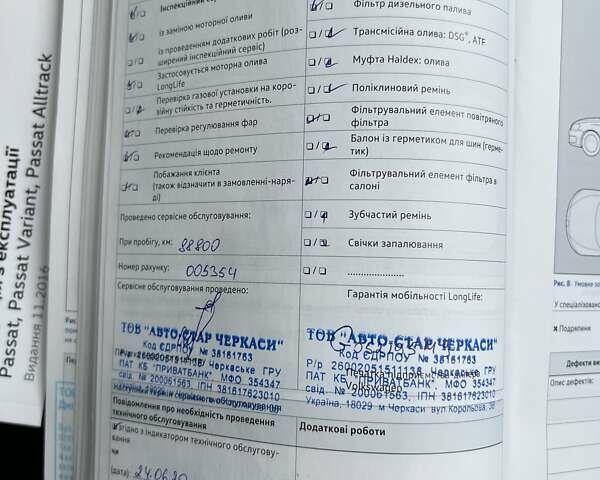 Інспекційний сервіс
із заміною моторної оливи
із проведенням додаткових робіт (роз-
ширений інспекційний сервіс)
Застосовується моторна олива
LongLife
Перевірка газової установки на коро-
зійну стійкість та герметичність.
Перевірка регулювання фар
Рекомендація щодо ремонту
Побажання клієнта
(також відзначити в замовленні-наря-
ді)
Проведено сервісне обслуговування:
При пробігу, км: 88800
Номер рахунку: 005354
Сервісне обслуговування проведено:
ТОВ "АВТО-СТАР ЧЕРКАСИ"
Код ЄДРПОУ № 38161763
Р/р 26002051511138, Черкаське ГРУ
ПАТ КБ "ПРИВАТБАНК", МФО 354347
свід. № 200061563, ІПН 381617623010
Повідомлення про необхідність проведення
технічного обслуговування
Згідно з індикатором технічного обслугову-
вання
(дата): 24.06.20
Фільтр дизельного палива
Трансмісійна олива: DSG®, ATF
Муфта Haldex: олива
Поліклиновий ремінь
Фільтрувальний елемент повітряного
фільтра
Балон із герметиком для шин (герме-
тик)
Фільтрувальний елемент фільтра в
салоні
Зубчастий ремінь
Свічки запалювання
....................
Гарантія мобільності LongLife:
ТОВ "АВТО-СТАР ЧЕРКАСИ"
Код ЄДРПОУ № 38161763
Р/р 26002051511138, Черкаське ГРУ
ПАТ КБ "ПРИВАТБАНК", МФО 354347
Volkswagen
свід. № 200061563, ІПН 381617623010
Україна, 18029 м Черкаси вул Корольова, 38
Додаткові роботи
з експлуатації
Passat, Passat Variant, Passat Alltrack
Видання 11.2016
Рис. 8 Умовне
У спеціалізовано
× Подряпини
Дефекти
Опис дефектів: